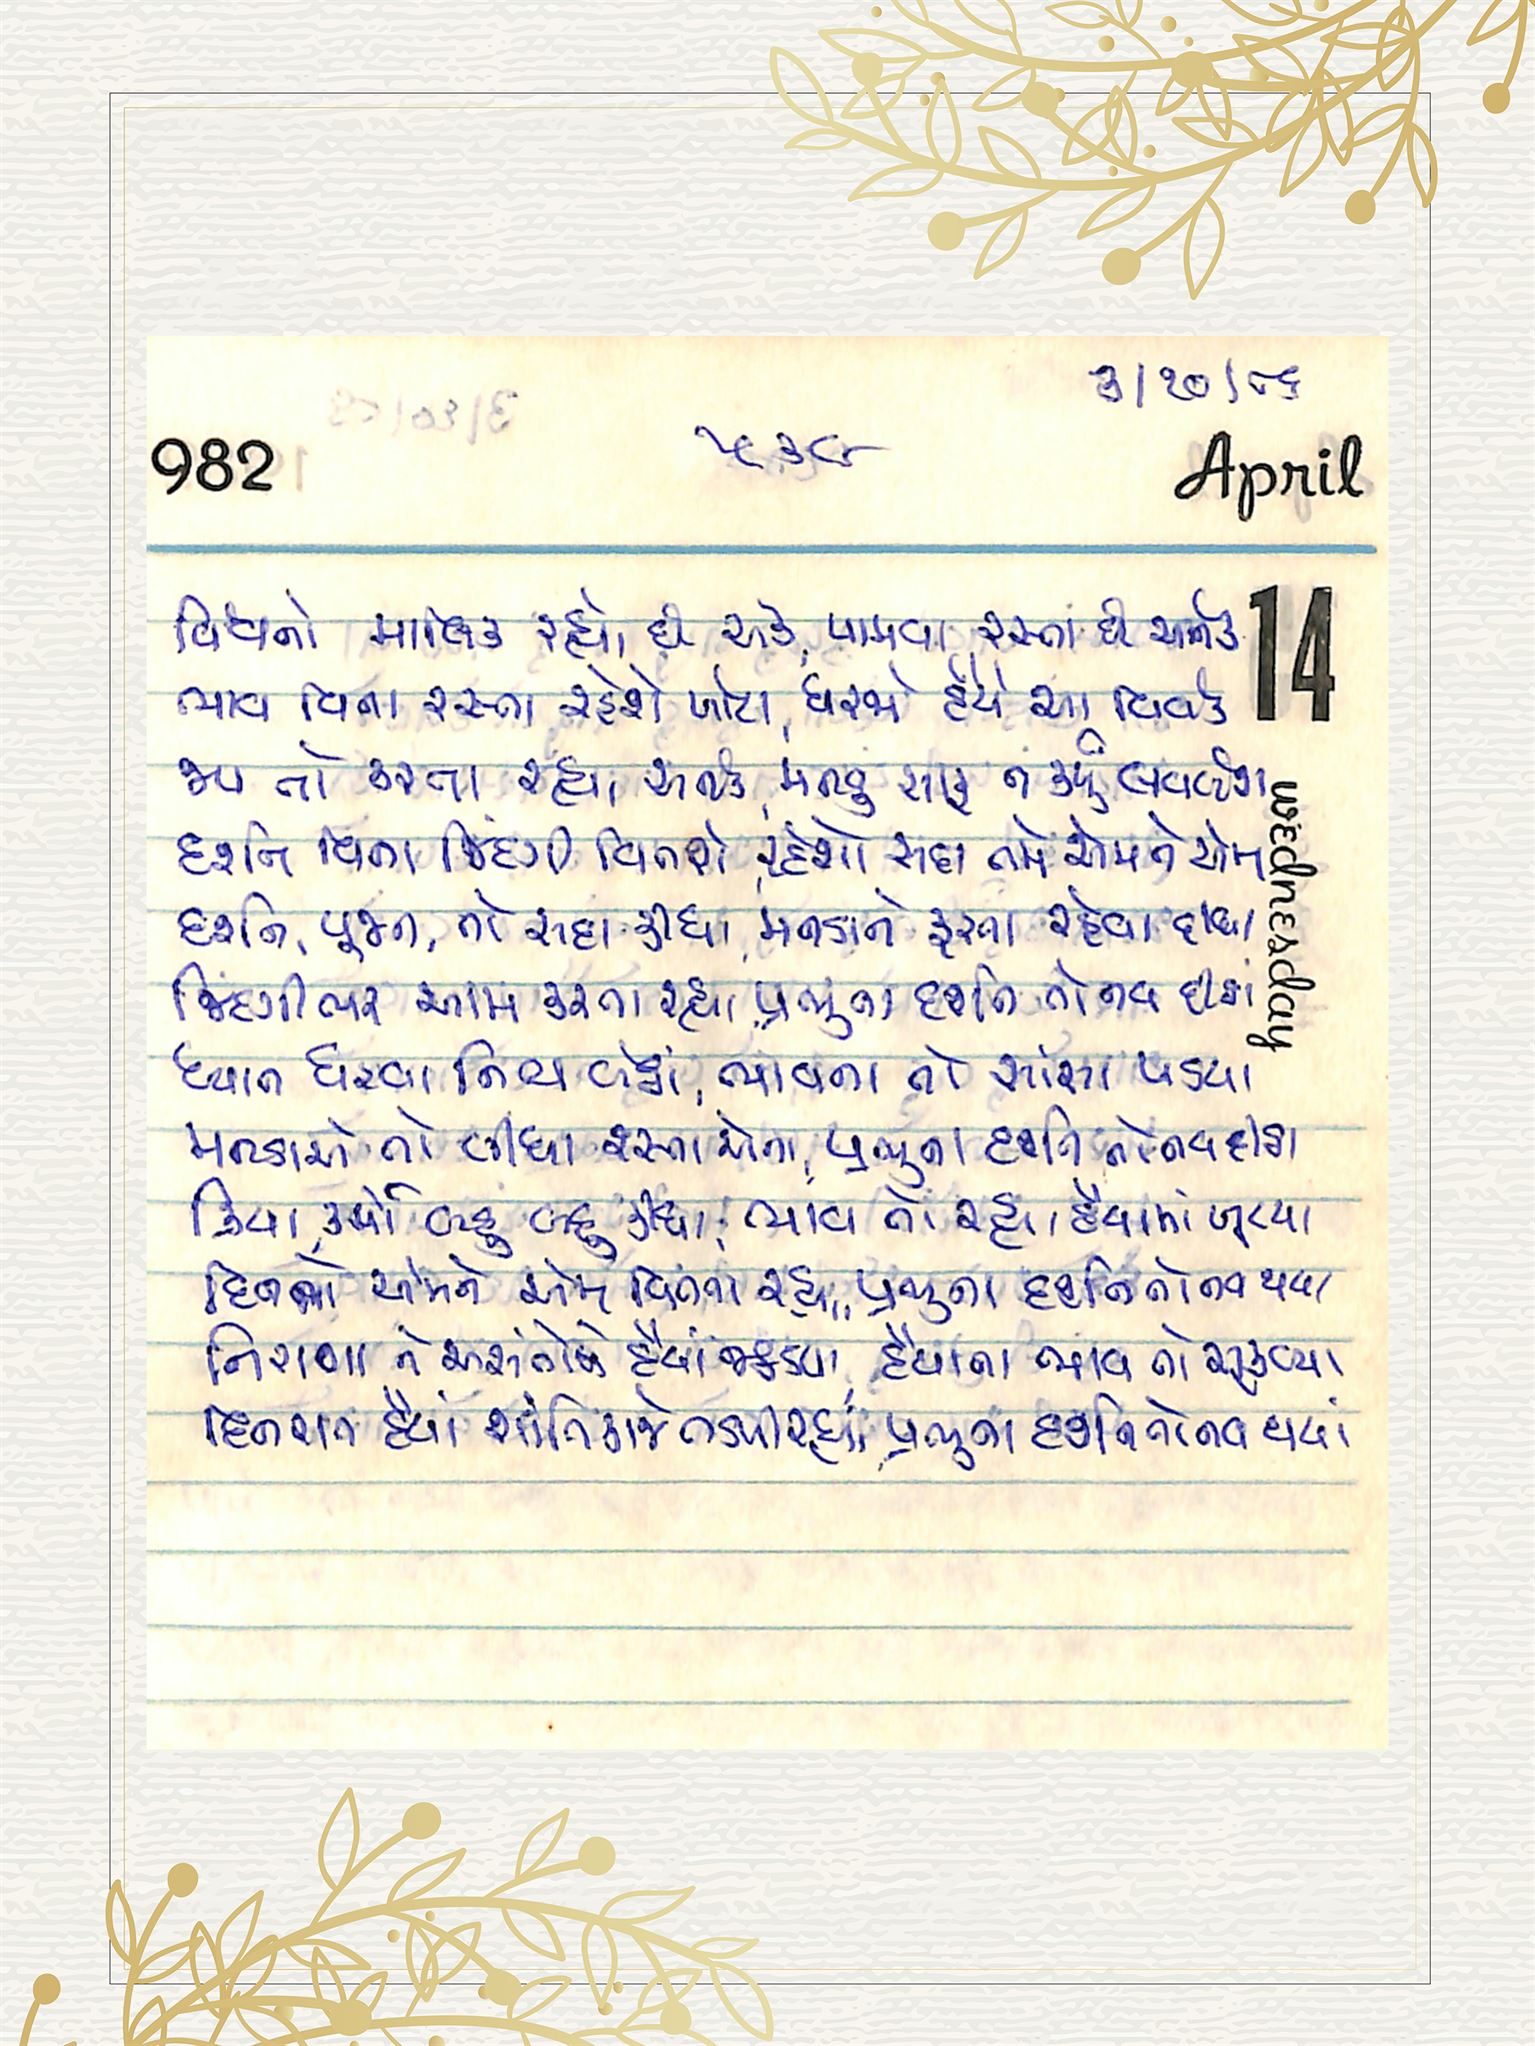 3/૧૦/૮૬
982
૫૩૮
April
14
wednesday
વિશ્વનો માલિક રહ્યો છે એક, પામવા રસ્તા છે અનેક
ભાવ વિના રસ્તા રહેશે ખોટા, ધરજો હૈયે આ વિવેક
જપ તો કરતા રહ્યા અનેક, મનડું સ્થિર ન કર્યું લવલેશ
દર્શન વિના જિંદગી વિતશે, રહેશો સદા તમે એમને એમ
દર્શન, પૂજન, તો સદા કીધા, મનડાને ફરતા રહેવા દીધા
જિંદગીભર આમ કરતા રહ્યા, પ્રભુના દર્શન તો નવ દીઠાં
ધ્યાન ધરવા નિત્ય બેઠાં, ભાવના તો સાંસા પડયા
મનડાએ તો લીધા રસ્તા એના, પ્રભુના દર્શન તો નવ દીઠા
ક્રિયા કર્મો બહુ બહુ કીધા, ભાવ તો રહ્યા હૈયામાં ખૂટયા
દિવસો એમને એમ વિતતા રહ્યા, પ્રભુના દર્શન તો નવ થયા
નિરાશા ને અસંતોષે હૈયાં જકડયા, હૈયાના ભાવ તો સૂકવ્યા
દિનરાત હૈયાં શાંતિ કાજે તડપી રહ્યાં, પ્રભુના દર્શન તો નવ થયાં